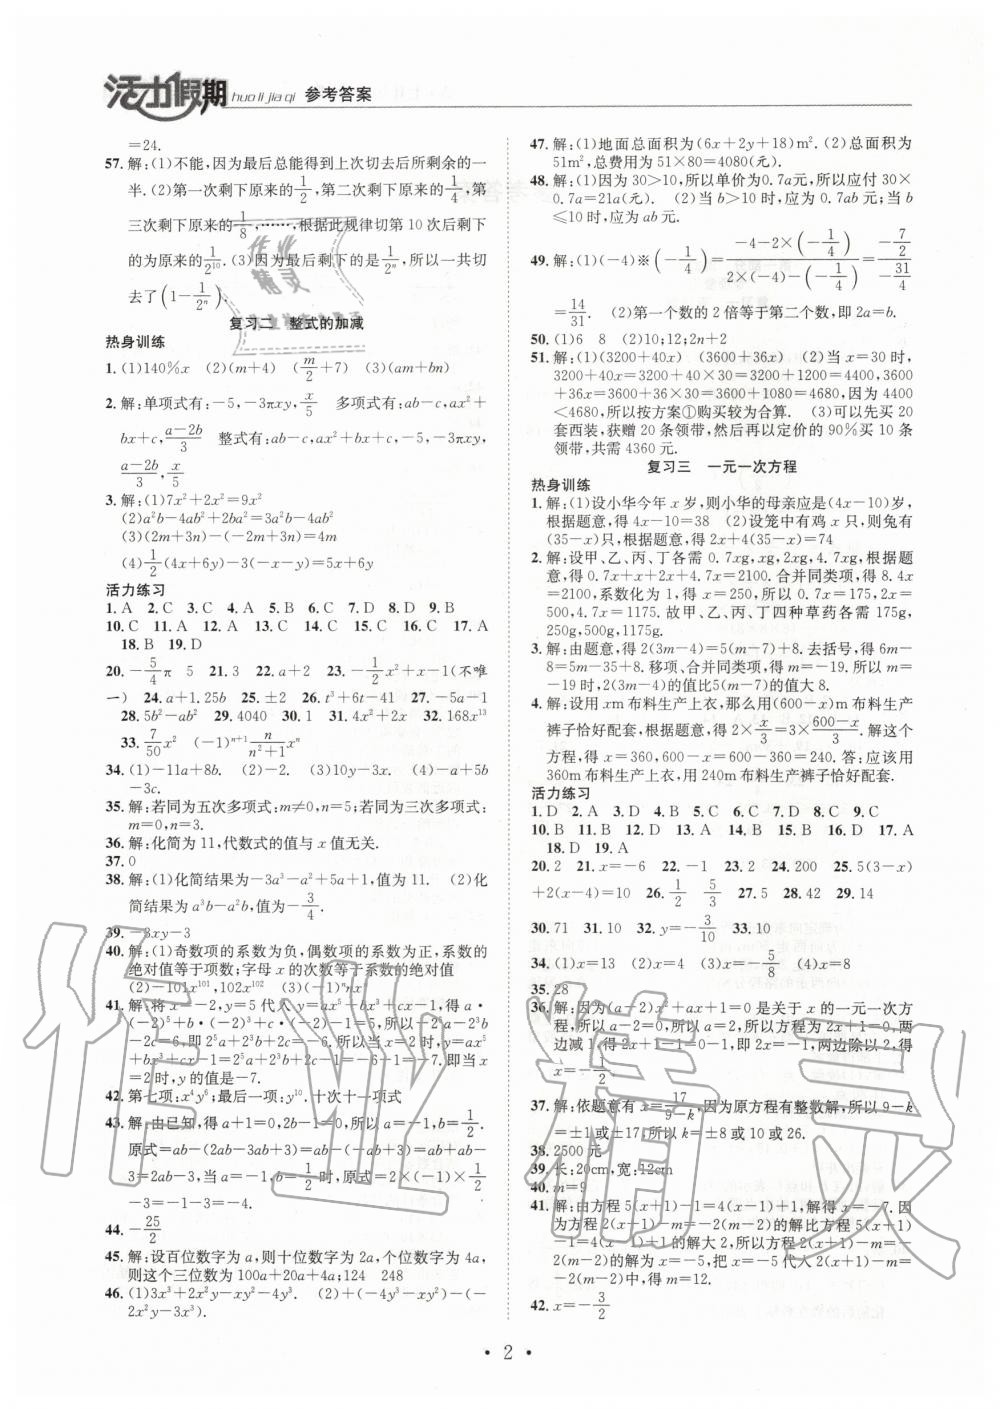 活力假期 huo li jia qi 参考答案
=24.
57. 解:(1)不能,因为最后总能得到上次切去后所剩余的一
半.(2)第一次剩下原来的1/2,第二次剩下原来的1/4,第
三次剩下原来的1/8,……,根据此规律切第10次后剩下
的为原来的1/2^10.(3)因为最后是原来的1/2^n,所以一共切
去了(1-1/2^n).
复习二 整式的加减
热身训练
1. (1)140%x (2)(m+4) (m/2+7) (3)(am+bn)
2. 解:单项式有:-5,-3πxy,x/5 多项式有:ab-c,ax²+
bx+c,(a-2b)/3 整式有:ab-c,ax²+bx+c,-5,-3πxy,
(a-2b)/3,x/5
3. 解:(1)7x²+2x²=9x²
(2)a²b-4ab²+2ba²=3a²b-4ab²
(3)(2m+3n)-(-2m+3n)=4m
(4)1/2(4x+6y)-3(-x-y)=5x+6y
活力练习
1. A 2. C 3. C 4. A 5. B 6. C 7. D 8. D 9. B
10. C 11. A 12. A 13. C 14. C 15. C 16. C 17. A
18. B 19. D
20. -5/4π 5 21. 3 22. a+2 23. -1/2x²+x-1(不唯
一) 24. a+1.25b 25. ±2 26. t³+6t-41 27. -5a-1
28. 5b²-ab² 29. 4040 30. 1 31. 4x²+2x 32. 168x¹³
33. 7/50x² (-1)^(n+1) n/(n²+1)x^n
34. (1)-11a+8b. (2)-2. (3)16xy-3x. (4)-a+5b
-3c.
35. 解:若同为五次多项式:m≠0,n=5;若同为三次多项式:
m=0,n=3.
36. 解:化简为11,代数式的值与x值无关.
37. 0
38. 解:(1)化简结果为-3a³-a²+5a+1,值为11. (2)化
简结果为a³b-a²b²,值为-3/4.
39. -3xy-3
40. 解:(1)奇数项的系数为负,偶数项的系数为正,系数的
绝对值等于项数;字母x的次数等于系数的绝对值
(2)-101x^101,102x^102 (3)(-1)^n nx^n
41. 解:将x=-2,y=5代入y=ax⁵+bx³+cx-1,得a·
(-2)⁵+b·(-2)³+c(-2)-1=5,所以-2⁵a-2³b
-2c=6,即2⁵a+2³b+2c=-6.所以当x=2时,y=ax⁵
+bx³+cx-1=2⁵a+2³b+2c-1=-6-1=-7.即当x
=2时,y的值是-7.
42. 第七项:x⁴y⁶;最后一项:y¹⁰.十次十一项式
43. 解:由已知,得a+1=0,2b-1=0,所以a=-1,b=1/2.
原式=ab-(2ab-3ab+3)=ab-(-ab+3)=ab+ab
-3=2ab-3,当a=-1,b=1/2时,原式=2×(-1)×1/2
-3=-1-3=-4.
44. -25/2
45. 解:设百位数字为a,则十位数字为2a,个位数字为4a,
则这个三位数为100a+20a+4a;124 248
46. (1)3x³+2x²y-xy²-4y³. (2)+(-4y³-xy²)-(-
2x²y-3x³).
47. 解:(1)地面总面积为(6x+2y+18)m². (2)总面积为
51m²,总费用为51×80=4080(元).
48. 解:(1)因为30>10,所以单价为0.7a元,所以应付30×
0.7a=21a(元). (2)当b>10时,应为0.7ab元;当b
≤10时,应为ab元.
49. 解:(1)(-4)※(-1/4)=(-4-2×(-1/4))/(2×(-4)-(-1/4))=(-7/2)/(-31/4)
=14/31. (2)第一个数的2倍等于第二个数,即2a=b.
50. (1)6 8 (2)10;12;2n+2
51. 解:(1)(3200+40x) (3600+36x) (2)当x=30时,
3200+40x=3200+40×30=3200+1200=4400,3600
+36x=3600+36×30=3600+1080=4680,因为4400
<4680,所以按方案①购买较为合算. (3)可以先买20
套西装,获赠20条领带,然后再以定价的90%买10条
领带,共需4360元.
复习三 一元一次方程
热身训练
1. 解:(1)设小华今年x岁,则小华的母亲应是(4x-10)岁,
根据题意,得4x-10=38 (2)设笼中有鸡x只,则兔有
(35-x)只,根据题意,得2x+4(35-x)=74
2. 解:设甲、乙、丙、丁各需0.7xg,xg,2xg,4.7xg,根据题
意,得0.7x+x+2x+4.7x=2100.合并同类项,得8.4x
=2100,系数化为1,得x=250,所以0.7x=175,2x=
500,4.7x=1175.故甲、乙、丙、丁四种草药各需175g,
250g,500g,1175g.
3. 解:由题意,得2(3m-4)=5(m-7)+8.去括号,得6m-
8=5m-35+8.移项、合并同类项,得m=-19.所以m=
-19时,2(3m-4)的值比5(m-7)的值大8.
4. 解:设用xm布料生产上衣,那么用(600-x)m布料生产
裤子恰好配套.根据题意,得2×x/3=3×(600-x)/3.解这个
方程,得x=360,600-x=600-360=240.答:应该用
360m布料生产上衣,用240m布料生产裤子恰好配套.
活力练习
1. D 2. A 3. D 4. A 5. C 6. C 7. D 8. C 9. C
10. B 11. B 12. D 13. A 14. B 15. B 16. D 17. A
18. D 19. A
20. 2 21. x=-6 22. -1 23. 2 24. 200 25. 5(3-x)
+2(x-4)=10 26. 1/2 5/3 27. 5 28. 42 29. 14
30. 71 31. 10 32. y=-3/10 33. 10
34. (1)x=13 (2)x=4 (3)x=-5/8 (4)x=8
35. 28
36. 解:因为(a-2)x²+ax+1=0是关于x的一元一次方
程,所以a-2=0,所以a=2,所以方程为2x+1=0,两
边减1,得2x+1-1=0-1,即2x=-1,两边除以2,得
x=-1/2.
37. 解:依题意有x=17/(9-k),因为原方程有整数解,所以9-k
=±1或±17,所以k=±8或10或26.
38. 2500元
39. 长:20cm,宽:12cm
40. m=9
41. 解:由方程5(x+1)-1=4(x-1)+1,解得x=-7.因
为方程2(x+1)-m=-2(m-2)的解比方程5(x+1)
-1=4(x-1)+1的解大2,所以方程2(x+1)-m=-
2(m-2)的解为x=-5,把x=-5代入2(x+1)-m=
-2(m-2)中,得m=12.
42. x=-3/2
· 2 ·
作业精灵